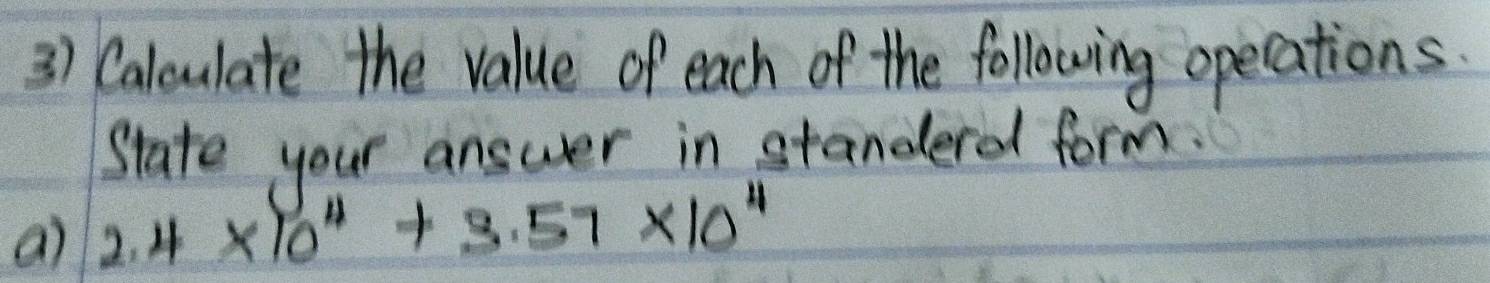 3) Calculate the value of each of the following operations.
State your answer in standerd form.
a) 2.4 × 10⁴ + 3.57 × 10⁴